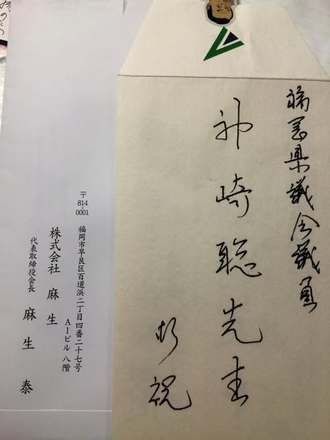 福岡県議会議員
神崎聡先生
祝
〒814-0001
福岡市早良区百道浜二丁目四番二十七号
AIビル 八階
株式会社 麻生
代表取締役会長 麻生 泰